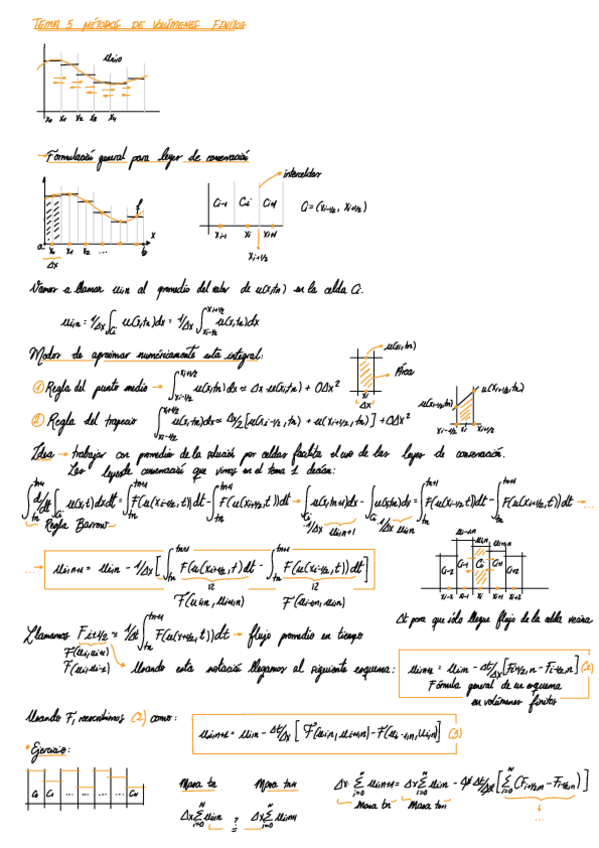 TEMA 5 MÉTODOS DE VOLÚMENES FINITOS
ui,0
x0 x1 x2 x3 x4
→ Formulación general para leyes de conservación
interceldas
Ci-1 Ci Ci+1
Ci = (xi-1/2, xi+1/2)
xi-1 xi xi+1
xi+1/2
f
a x0 x1 x2 ... b x
Δx
Vamos a llamar ui,n al promedio del valor de u(x,tn) en la celda Ci.
ui,n = 1/Δx ∫Ci u(x,tn)dx = 1/Δx ∫xi-1/2 xi+1/2 u(x,tn)dx
Modos de aproximar numéricamente esta integral:
u(xi,tn)
Área
xi
Δx
① Regla del punto medio → ∫xi-1/2 xi+1/2 u(x,tn)dx ≈ Δx u(xi,tn) + OΔx²
② Regla del trapecio ∫xi-1/2 xi+1/2 u(x,tn)dx ≈ Δx/2 [u(xi-1/2, tn) + u(xi+1/2, tn)] + OΔx²
u(xi-1/2,tn) u(xi+1/2,tn)
xi-1/2 xi xi+1/2
Idea → trabajar con promedios de la solución por celdas facilita el uso de las leyes de conservación.
Las leyes de conservación que vimos en el tema 1 decían:
∫tn tn+1 d/dt ∫Ci u(x,t)dxdt = ∫tn tn+1 F(u(xi-1/2, t))dt - ∫tn tn+1 F(u(xi+1/2, t))dt → ∫Ci u(x,tn+1)dx - ∫Ci u(x,tn)dx = ∫tn tn+1 F(u(xi-1/2,t))dt - ∫tn tn+1 F(u(xi+1/2,t))dt → ...
Regla Barrow
1/Δx ui,n+1 1/Δx ui,n
... → ui,n+1 = ui,n - 1/Δx [ ∫tn tn+1 F(u(xi+1/2, t)dt - ∫tn tn+1 F(u(xi-1/2, t))dt ]
F(ui,n, ui+1,n) F(ui-1,n, ui,n)
ui-1,n ui,n ui+1,n
Ci-2 Ci-1 Ci Ci+1 Ci+2
xi-2 xi-1 xi xi+1 xi+2
Δt para que sólo llegue flujo de la celda vecina
Llamamos Fi+1/2 ≈ 1/Δt ∫tn tn+1 F(u(x+1/2, t))dt → flujo promedio en tiempo
F(ui, ui+1)
F(ui, ui-1)
Usando esta notación llegamos al siguiente esquema:
ui,n+1 = ui,n - Δt/Δx [Fi+1/2,n - Fi-1/2,n] (2)
Fórmula general de un esquema
en volúmenes finitos
Usando F, reescribimos (2) como:
ui,n+1 = ui,n - Δt/Δx [ F(ui,n, ui+1,n) - F(ui-1,n, ui,n) ] (3)
* Ejercicio:
C0 C1 ... ... ... CN
Masa tn Masa tn+1
Δx Σ i=0 N ui,n ?= Δx Σ i=0 N ui,n+1
Δx Σ i=0 N ui,n+1 = Δx Σ i=0 N ui,n - Δx Δt/Δx [ Σ i=0 N (Fi+1/2,n - Fi-1/2,n) ]
Masa tn Masa tn+1
...